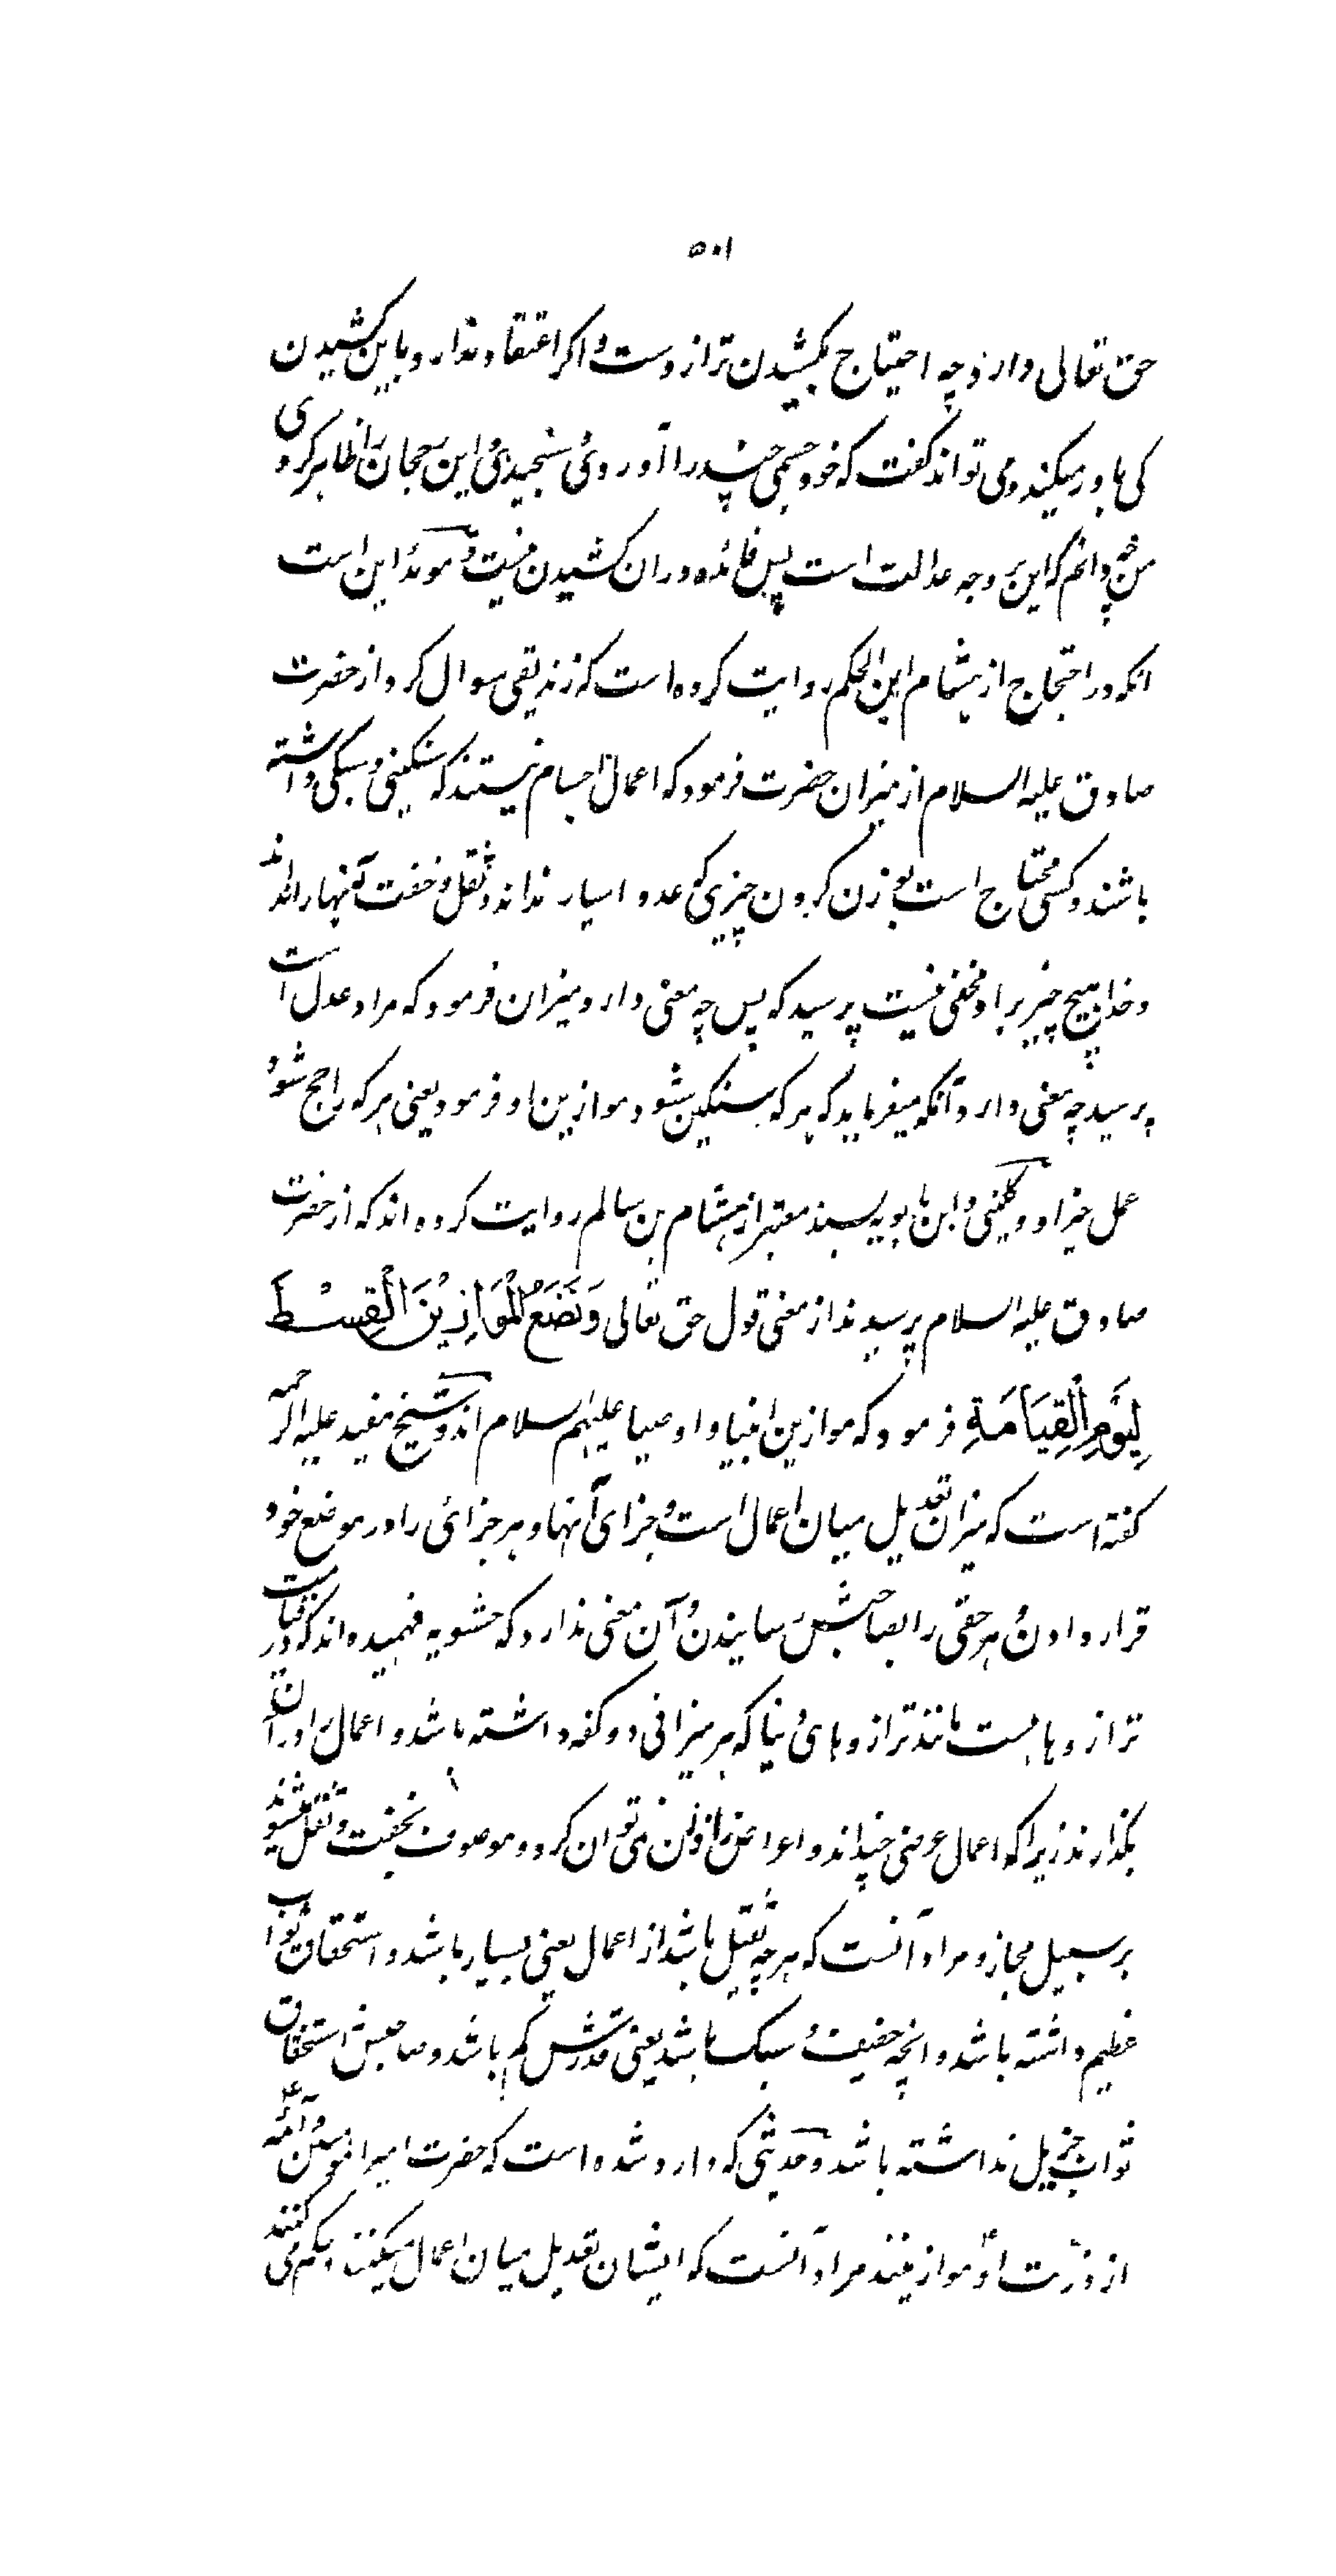 ۵۰۱
حق تعالی دارد چه احتیاج بکشیدن ترازوست و اکر اعتقاد ندارد باین کشیدن
کی باور میکند و می تواند کفت که خود جسمی چند را آوردی و سنجیدی و این رجحان را ظاهر کردی
من چه دانم که این بر وجه عدالت است پس فائده در ان کشیدن نیست و مؤید این است
انکه در احتجاج از هشام ابن الحکم روایت کرده است که زندیقی سوال کرد از حضرت
صادق علیه السلام از میزان حضرت فرمود که اعمال اجسام نیستند که سنکینی و سبکی داشته
باشند و کسی محتاج است بوزن کردن چیزی که عدد اسیار نداند و ثقل و خفت آنهارا نداند
و خدا هیچ چیز بر او مخفی نیست پرسید که پس چه معنی دارد میزان فرمود که مراد عدل است
پرسید چه معنی دارد آنکه میفرماید که هر که سنکین شود موازین او فرمود یعنی هر که راجح شود
عمل خیر او و کلینی و ابن بابویه بسند معتبر از هشام بن سالم روایت کرده اند که از حضرت
صادق علیه السلام پرسیدند از معنی قول حق تعالی وَنَضَعُ الْمَوَازِیْنَ الْقِسْطَ
لِیَوْمِ الْقِیَامَةِ فرمود که موازین انبیا و اوصیا علیهم السلام اند و شیخ مفید علیه الرحمه
کفته است که میزان تعدیل میان اعمال است و جزای آنها و هر جزائی را در موضع خود
قرار دادن و هر حقی را بصاحبش رسانیدن و آن معنی ندارد که حشویه فهمیده اند که در قیامت
ترازوها هست مانند ترازوهای دنیا که هر میزانی دو کفه داشته باشد و اعمال را در آن
بکذارند زیرا که اعمال عرضی چند اند و اعراض را وزن نمی توان کرد و موصوف بخفت و ثقل نمیشوند
بر سبیل مجاز و مراد آنست که هر چه ثقیل باشد از اعمال یعنی بسیار باشد و استحقاق ثواب
عظیم داشته باشد و انچه خفیف و سبک باشد یعنی قدرش کم باشد و صاحبش استحقاق
ثواب جزیل نداشته باشد و حدیثی که وارد شده است که حضرت امیر المومنین و آئمه ع
از ذریت او موازینند مراد آنست که ایشان تعدیل میان اعمال میکنند و حکم می کنند